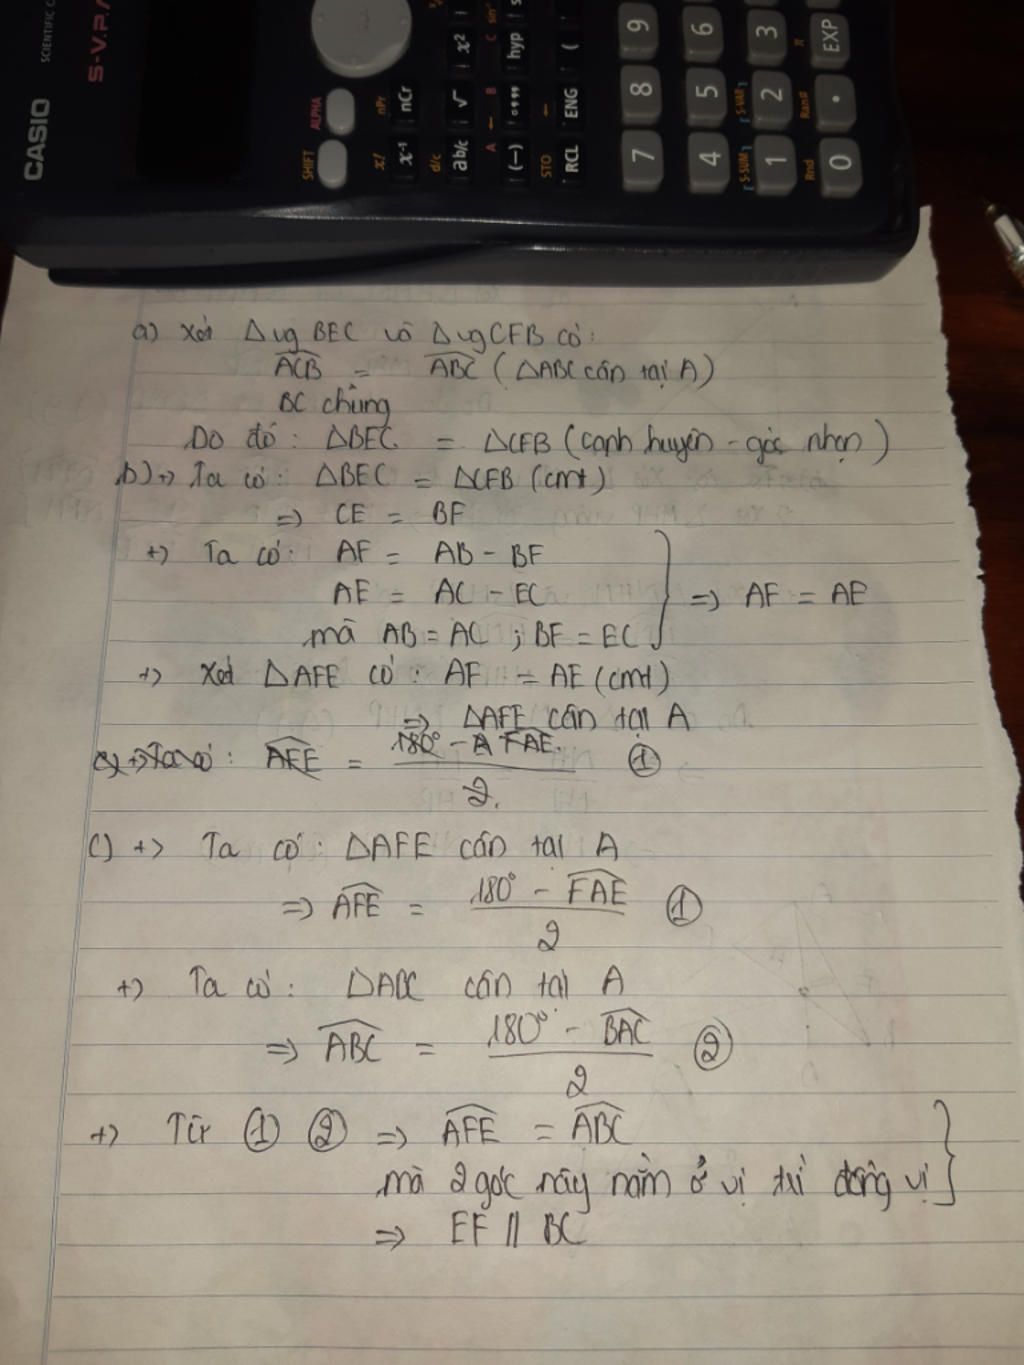 CASIO
SCIENTIFIC C
S-V.P.A
SHIFT ALPHA
x! nPr
x⁻¹ nCr
d/c
ab/c √ x²
A ← B C sin⁻¹
(−) °''' hyp
STO ←
RCL ENG (
7 8 9
4 5 6
S-SUM S-VAR
1 2 3
Rnd Ran# π
0 · EXP
a) Xét Δvg BEC và Δvg CFB có:
ACB = ABC (ΔABC cân tại A)
BC chung
Do đó: ΔBEC = ΔCFB (cạnh huyền - góc nhọn)
b) +) Ta có: ΔBEC = ΔCFB (cmt)
=> CE = BF
+) Ta có: AF = AB - BF
AE = AC - EC => AF = AE
mà AB = AC ; BF = EC
+) Xét ΔAFE có: AF = AE (cmt)
=> ΔAFE cân tại A
c) +) Ta có: AFE = 180° - FAE / 2. ①
c) +) Ta có: ΔAFE cân tại A
=> AFE = 180° - FAE / 2 ①
+) Ta có: ΔABC cân tại A
=> ABC = 180° - BAC / 2 ②
+) Từ ① ② => AFE = ABC
mà 2 góc này nằm ở vị trí đồng vị
=> EF // BC